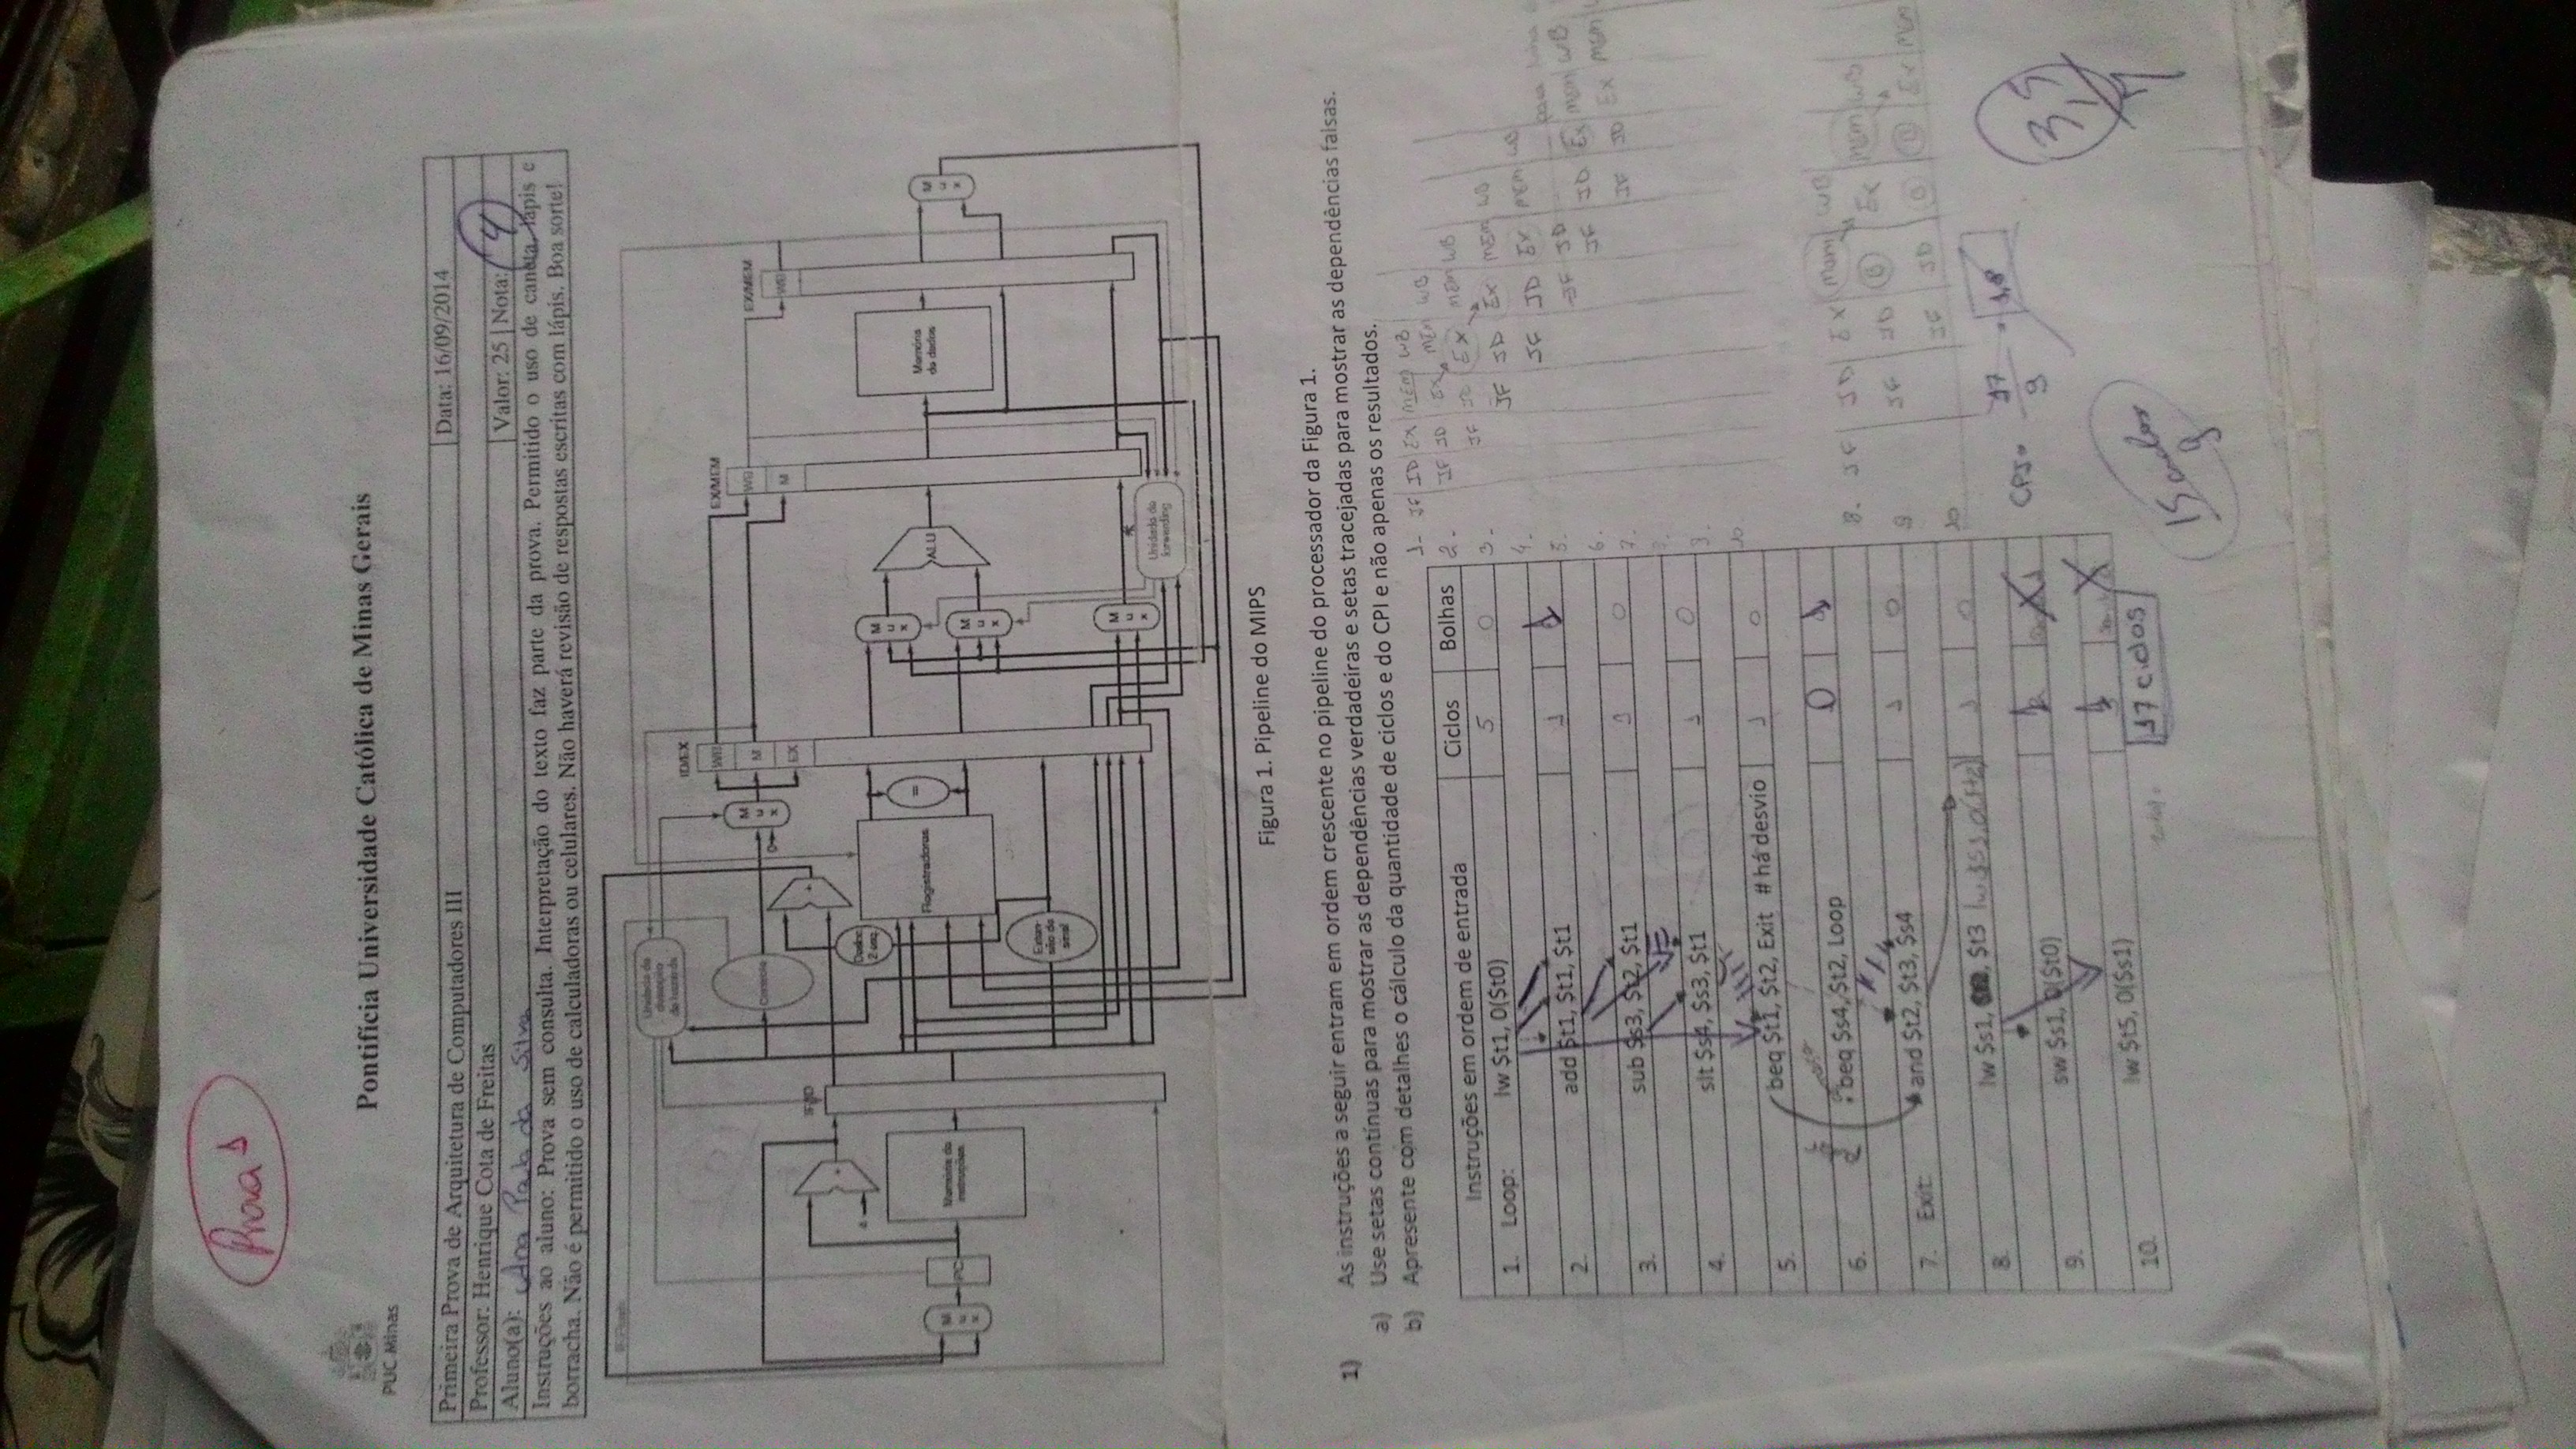 Prova 1
PUC Minas
Pontifícia Universidade Católica de Minas Gerais
Primeira Prova de Arquitetura de Computadores III Data: 16/09/2014
Professor: Henrique Cota de Freitas
Aluno(a): Ana Paula da Silva Valor: 25 | Nota: 4
Instruções ao aluno: Prova sem consulta. Interpretação do texto faz parte da prova. Permitido o uso de caneta, lápis e
borracha. Não é permitido o uso de calculadoras ou celulares. Não haverá revisão de respostas escritas com lápis. Boa sorte!
Unidade de
detecção
de hazards
ID/EX
WB
M
EX
EX/MEM
WB
M
EX/MEM
WB
Controle
Mux
0
IF/ID
4
Desloc
2 esq
Mux
PC
Memória de
instruções
Registradores
=
Mux
Mux
ALU
Memória
de dados
Mux
Exten-
são de
sinal
Mux
Unidade de
forwarding
Figura 1. Pipeline do MIPS
1) As instruções a seguir entram em ordem crescente no pipeline do processador da Figura 1.
a) Use setas contínuas para mostrar as dependências verdadeiras e setas tracejadas para mostrar as dependências falsas.
b) Apresente com detalhes o cálculo da quantidade de ciclos e do CPI e não apenas os resultados.
Instruções em ordem de entrada Ciclos Bolhas
1. Loop: lw $t1, 0($t0) 5 0
2. add $t1, $t1, $t1 1 1
3. sub $s3, $t2, $t1 1 0
4. slt $s4, $s3, $t1 1 0
5. beq $t1, $t2, Exit # há desvio 1 0
6. beq $s4, $t2, Loop 0 1
7. Exit: and $t2, $t3, $s4 1 0
8. lw $s1, , $t3 lw $s1, 0($t2) 1 0
9. sw $s1, 0($t0) 1
10. lw $t5, 0($s1) 1
17 ciclos
1- IF ID EX MEM WB
2. IF ID EX MEM WB
3. IF ID EX MEM WB
4. IF ID EX MEM WB
5. IF ID EX MEM WB
6. IF ID
7. IF ID EX MEM WB
IF ID EX MEM
8. IF ID EX Mem WB
9 IF ID B EX MEM WB
10 IF ID B B EX MEM
CPI = 17/9 = 1,8
15 ciclos
9
3,5
4